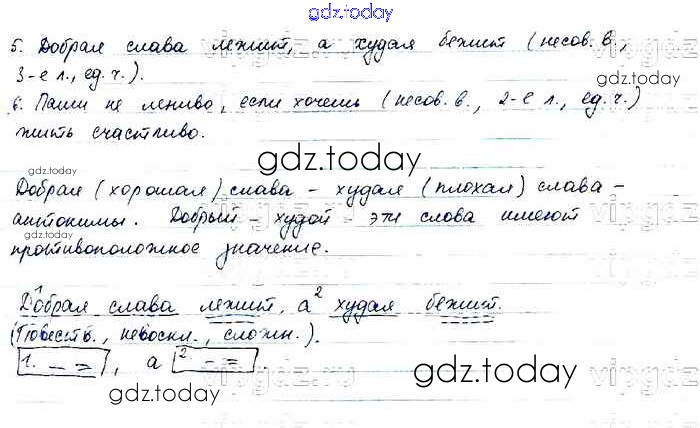 gdz.today
5. Добрая слава лежит, а худая бежит (несов. в.,
3-е л., ед. ч.).
gdz.today
6. Паши не лениво, если хочешь (несов. в., 2-е л., ед. ч.)
жить счастливо.
gdz.today
gdz.today
Добрая (хорошая) слава - худая (плохая) слава -
антонимы. Добрый - худой - эти слова имеют
gdz.today
противоположное значение.
Добрая слава лежит, а худая бежит.
(Повеств., невоскл., сложн.).
1. – = , а 2 – = .
gdz.today
gdz.today
vipgdz.ru